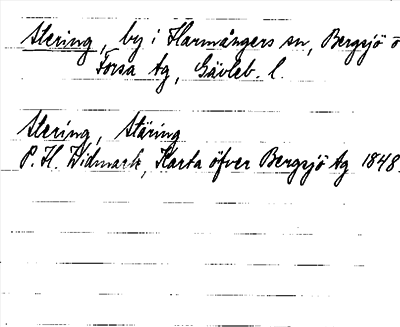 Stering, by i Harmångers sn, Bergsjö o
Forsa tg, Gävleb. l.
Stering, Stäring
P. H. Widmark, Karta öfver Bergsjö tg 1848.